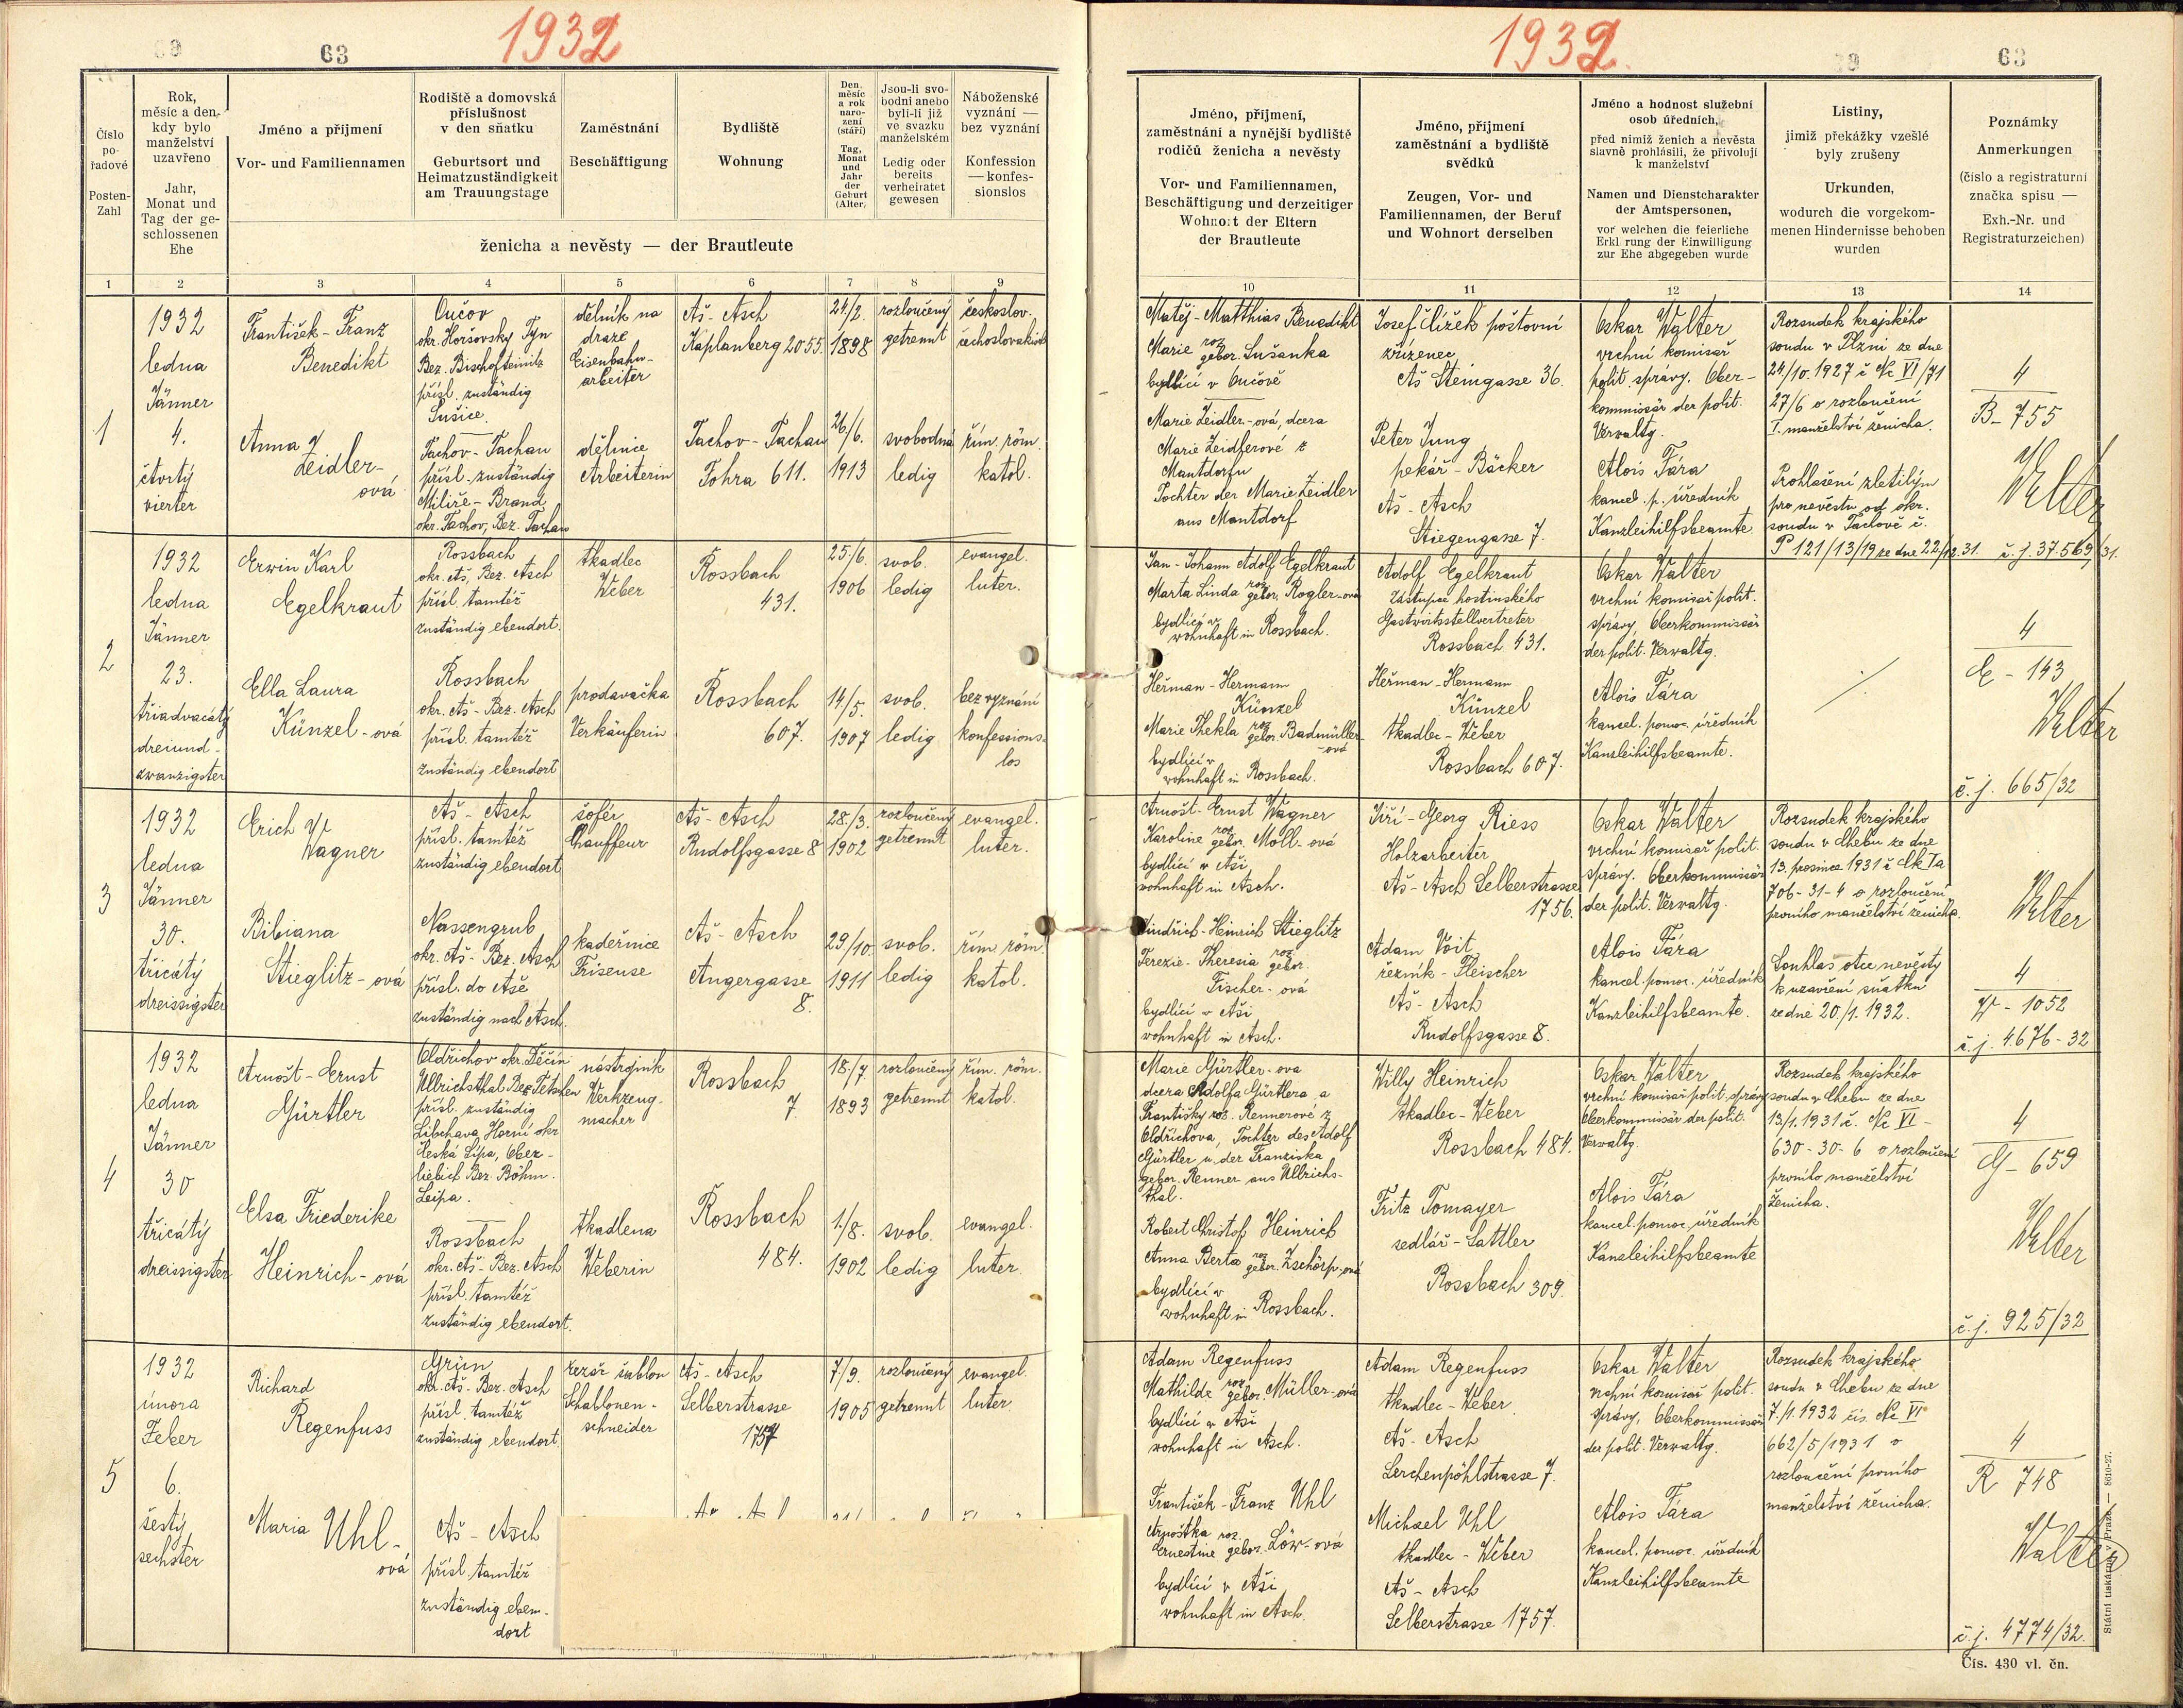 1932
63
Číslo pořadové
Posten-Zahl
Rok, měsíc a den, kdy bylo manželství uzavřeno
Jahr, Monat und Tag der geschlossenen Ehe
Jméno a příjmení
Vor- und Familiennamen
Rodiště a domovská příslušnost v den sňatku
Geburtsort und Heimatzuständigkeit am Trauungstage
Zaměstnání
Beschäftigung
Bydliště
Wohnung
Den, měsíc a rok narození (stáří)
Tag, Monat und Jahr der Geburt (Alter)
Jsou-li svobodni anebo byli-li již ve svazku manželském
Ledig oder bereits verheiratet gewesen
Náboženské vyznání — bez vyznání
Konfession — konfessionslos
ženicha a nevěsty — der Brautleute
1 2 3 4 5 6 7 8 9
1
1932
ledna
Jänner
4.
čtvrtý
vierter
František - Franz
Benedikt
Oučov
okr. Horšovský Týn
Bez. Bischofteinitz
přísl. zuständig
Sušice.
dělník na
draze
Eisenbahn-
arbeiter
Aš - Asch
Kaplanberg 2055.
24/2.
1898
rozloučený
getrennt
českoslov.
čechoslovakisch
Anna
Zeidler-
ová
Tachov - Tachau
přísl. zuständig
Milíře - Brand
okr. Tachov, Bez. Tachau
dělnice
Arbeiterin
Tachov - Tachau
Lohra 611.
26/6.
1913
svobodná
ledig
řím. röm.
katol.
2
1932
ledna
Jänner
23.
třiadvacátý
dreiund-
zwanzigster
Erwin Karl
Egelkraut
Rossbach
okr. Aš, Bez. Asch
přísl. tamtéž
zuständig ebendort.
tkadlec
Weber
Rossbach
431.
25/6.
1906
svob.
ledig
evangel.
luter.
Ella Laura
Künzel - ová
Rossbach
okr. Aš - Bez. Asch
přísl. tamtéž
zuständig ebendort
prodavačka
Verkäuferin
Rossbach
607.
14/5.
1907
svob.
ledig
bez vyznání
konfessions-
los
3
1932
ledna
Jänner
30.
třicátý
dreissigster
Erich
Wagner
Aš - Asch
přísl. tamtéž
zuständig ebendort
šofér
Chauffeur
Aš - Asch
Rudolfsgasse 8
28/3.
1902
rozloučený
getrennt
evangel.
luter.
Bibiana
Stieglitz - ová
Nassengrub
okr. Aš - Bez. Asch
přísl. do Aše
zuständig nach Asch.
kadeřnice
Friseuse
Aš - Asch
Angergasse
8.
29/10.
1911
svob.
ledig
řím. röm.
katol.
4
1932
ledna
Jänner
30
třicátý
dreissigster
Arnošt - Ernst
Gürtler
Oldřichov okr. Děčín
Ullrichsthal Bez. Tetschen
přísl. zuständig
Libchava Horní okr.
Česká Lípa, Ober-
liebich Bez. Böhm.
Leipa.
nástrojník
Werkzeug-
macher
Rossbach
7.
18/7.
1893
rozloučený
getrennt
řím. röm.
katol.
Elsa Friederike
Heinrich - ová
Rossbach
okr. Aš - Bez. Asch
přísl. tamtéž
zuständig ebendort.
tkadlena
Weberin
Rossbach
484.
1./8.
1902
svob.
ledig
evangel.
luter
5
1932
února
Feber
6.
šestý
sechster
Richard
Regenfuss
Grün
okr. Aš - Bez. Asch
přísl. tamtéž
zuständig ebendort.
řezáč šablon
Schablonen-
schneider
Aš - Asch
Selberstrasse
1757
7/9.
1905
rozloučený
getrennt
evangel.
luter.
Maria Uhl-
ová
Aš - Asch
přísl. tamtéž
zuständig eben-
dort
1932.
63
Jméno, příjmení, zaměstnání a nynější bydliště rodičů ženicha a nevěsty
Vor- und Familiennamen, Beschäftigung und derzeitiger Wohnort der Eltern der Brautleute
Jméno, příjmení zaměstnání a bydliště svědků
Zeugen, Vor- und Familiennamen, der Beruf und Wohnort derselben
Jméno a hodnost služební osob úředních, před nimiž ženich a nevěsta slavně prohlásili, že přivolují k manželství
Namen und Dienstcharakter der Amtspersonen, vor welchen die feierliche Erkl rung der Einwilligung zur Ehe abgegeben wurde
Listiny, jimiž překážky vzešlé byly zrušeny
Urkunden, wodurch die vorgekommenen Hindernisse behoben wurden
Poznámky
Anmerkungen
(číslo a registraturní značka spisu — Exh.-Nr. und Registraturzeichen)
10 11 12 13 14
Matěj - Matthias Benedikt
Marie roz. gebor. Sušanka
bydlící v Oučově
Marie Zeidler-ová, dcera
Marie Zeidlerové z
Mantdorfu
Tochter der Marie Zeidler
aus Mantdorf
Josef Čížek poštovní
zřízenec
Aš Steingasse 36.
Peter Jung
pekář - Bäcker
Aš - Asch
Stiegengasse 7.
Oskar Walter
vrchní komisař
polit. správy. Ober-
kommissär der polit.
Verwaltg.
Alois Fára
kancel. p. úředník
Kanzleihilfsbeamte.
Rozsudek krajského
soudu v Plzni ze dne
24/10. 1927 č Nc VI/71
27/6 o rozloučení
I. manželství ženicha.
Prohlášení zletilým
pro nevěstu od okr.
soudu v Tachově č.
P 121/13/19 ze dne 22/12.31.
4
B - 755
Walter
č. j. 37.569/31.
Jan - Johann Adolf Egelkraut
Marta Linda roz. gebor. Rogler-ová
bydlící v
wohnhaft in Rossbach.
Heřman - Hermann
Künzel
Marie Thekla roz. gebor. Badmüller
-ová
bydlící v
wohnhaft in Rossbach.
Adolf Egelkraut
zástupce hostinského
Gastwirtsstellvertreter
Rossbach 431.
Heřman - Hermann
Künzel
tkadlec - Weber
Rossbach 607.
Oskar Walter
vrchní komisař polit.
správy, Oberkommissär
der polit. Verwaltg.
Alois Fára
kancel. pomoc. úředník
Kanzleihilfsbeamte.
4
E - 143
Walter
č. j. 665/32
Arnošt - Ernst Wagner
Karoline roz. gebor. Moll - ová
bydlící v Aši
wohnhaft in Asch.
Jindřich - Heinrich Stieglitz
Terezie - Theresia roz. gebor.
Fischer - ová
bydlící v Aši
wohnhaft in Asch.
Jiří - Georg Riess
Holzarbeiter
Aš - Asch Selberstrasse
1756.
Adam Voit
řezník - Fleischer
Aš - Asch
Rudolfsgasse 8.
Oskar Walter
vrchní komisař polit.
správy. Oberkommissär
der polit. Verwaltg.
Alois Fára
kancel. pomoc. úředník
Kanzleihilfsbeamte.
Rozsudek krajského
soudu v Chebu ze dne
13. prosince 1931 č Ck Ia
706-31-4 o rozloučení
prvního manželství ženicha.
Souhlas otce nevěsty
k uzavření sňatku
ze dne 20./1. 1932.
Walter
4
W - 1052
č. j. 4.676 - 32
Marie Gürtler - ova
dcera Adolfa Gürtlera a
Františky roz. Rennerové z
Oldřichova, Tochter des Adolf
Gürtler u. der Franziska
gebor. Renner aus Ullrichs-
thal.
Robert Christof Heinrich
Anna Berta roz. gebor. Zschörp-ová
bydlící v
wohnhaft in Rossbach.
Willy Heinrich
tkadlec - Weber
Rossbach 484.
Fritz Tomayer
sedlář - Sattler
Rossbach 309.
Oskar Walter
vrchní komisař polit. správy
Oberkommissär der polit.
Verwaltg.
Alois Fára
kancel. pomoc. úředník
Kanzleihilfsbeamte
Rozsudek krajského
soudu v Chebu ze dne
13/1. 1931 č. Nc VI -
630-30-6 o rozloučení
prvního manželství
ženicha.
4
G - 659
Walter
č. j. 925/32
Adam Regenfuss
Mathilde roz. gebor. Müller-ová
bydlící v Aši
wohnhaft in Asch.
František - Franz Uhl
Arnoštka roz.
Ernestine gebor. Löw - ová
bydlící v Aši
wohnhaft in Asch.
Adam Regenfuss
tkadlec - Weber.
Aš - Asch
Lerchenpöhlstrasse 7.
Michael Uhl
tkadlec - Weber
Aš - Asch
Selberstrasse 1757.
Oskar Walter
vrchní komisař polit.
správy, Oberkommissär
der polit. Verwaltg.
Alois Fára
kancel. pomoc. úředník
Kanzleihilfsbeamte
Rozsudek krajského
soudu v Chebu ze dne
7./1. 1932 čís. Nc VI
662/5/1931 o
rozloučení prvního
manželství ženicha.
4
R 748
Walter
č. j. 4774/32.
Státní tiskárna v Praze. — 8610-27.
Čís. 430 vl. čn.